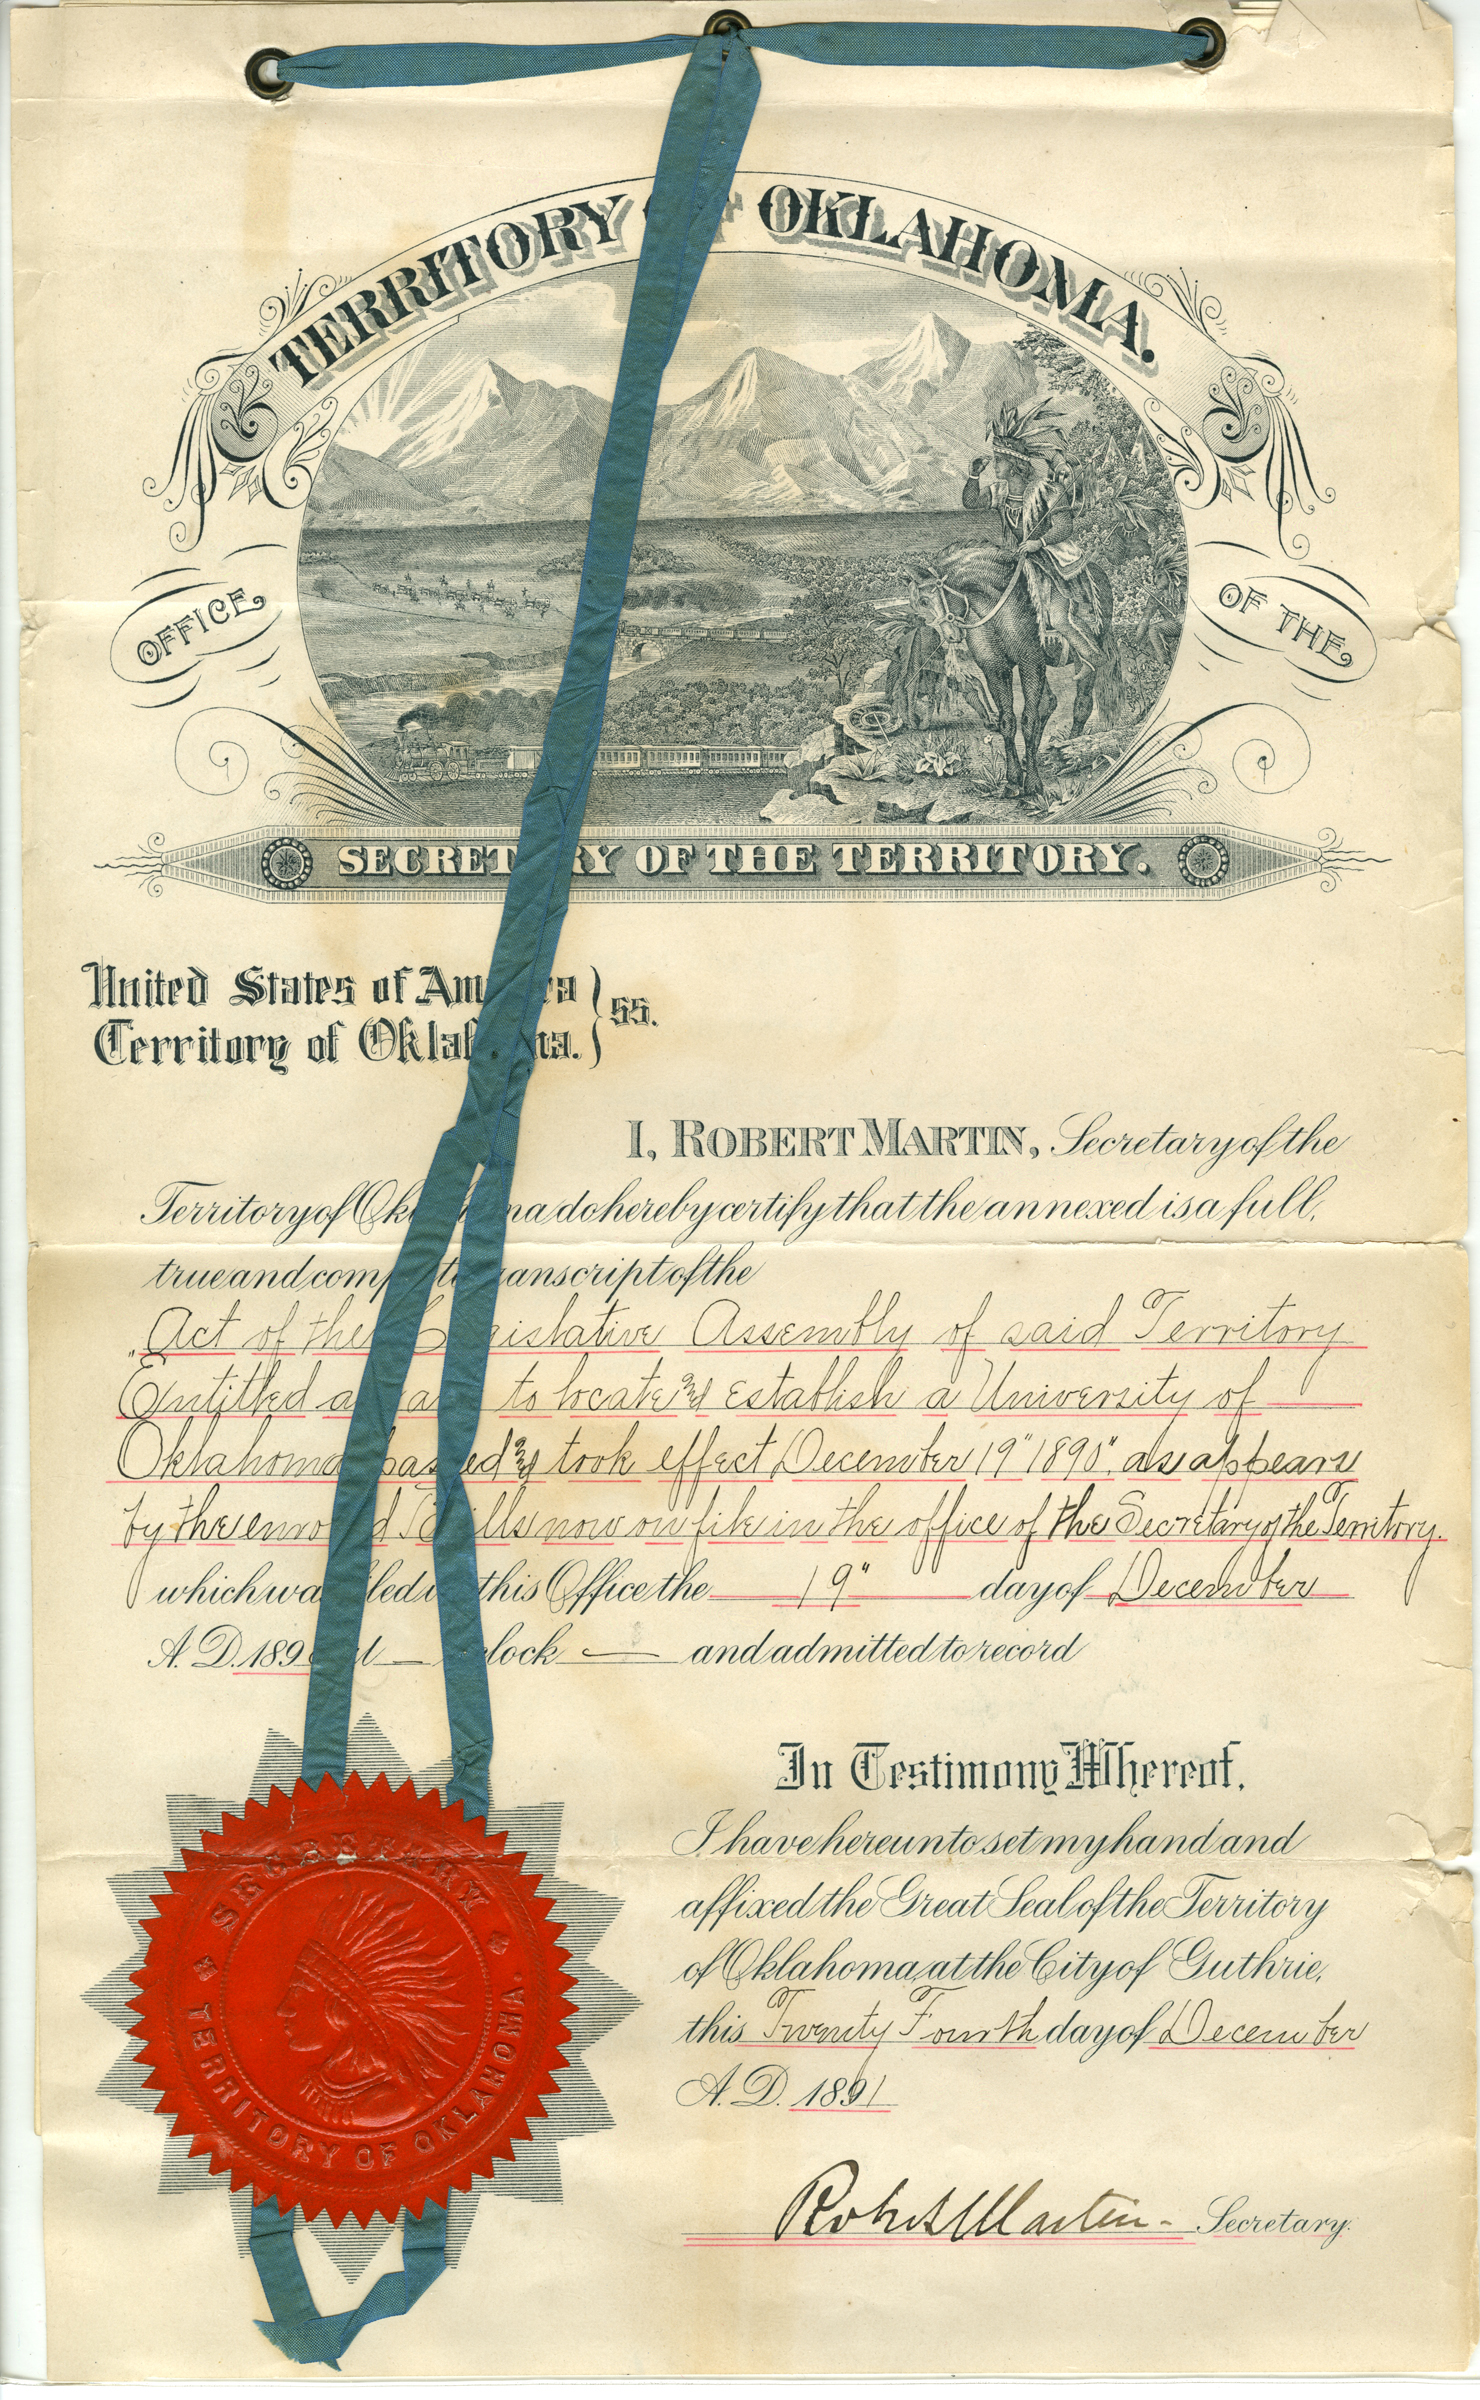 TERRITORY OF OKLAHOMA.
OFFICE
OF THE
SECRETARY OF THE TERRITORY.
United States of America
Territory of Oklahoma. } ss.
I, ROBERT MARTIN, Secretary of the
Territory of Oklahoma do hereby certify that the annexed is a full,
true and complete transcript of the
Act of the Legislative Assembly of said Territory
Entitled an act to locate and Establish a University of
Oklahoma passed and took effect December 19" 1890". as appears
by the enrolled Bills now on file in the office of the Secretary of the Territory.
which was filed in this Office the 19" day of December
A.D. 1890 at — o'clock — and admitted to record
In Testimony Whereof,
I have hereunto set my hand and
affixed the Great Seal of the Territory
of Oklahoma, at the City of Guthrie,
this Twenty Fourth day of December
A.D. 1891
Robert Martin - Secretary.
SECRETARY
TERRITORY OF OKLAHOMA.